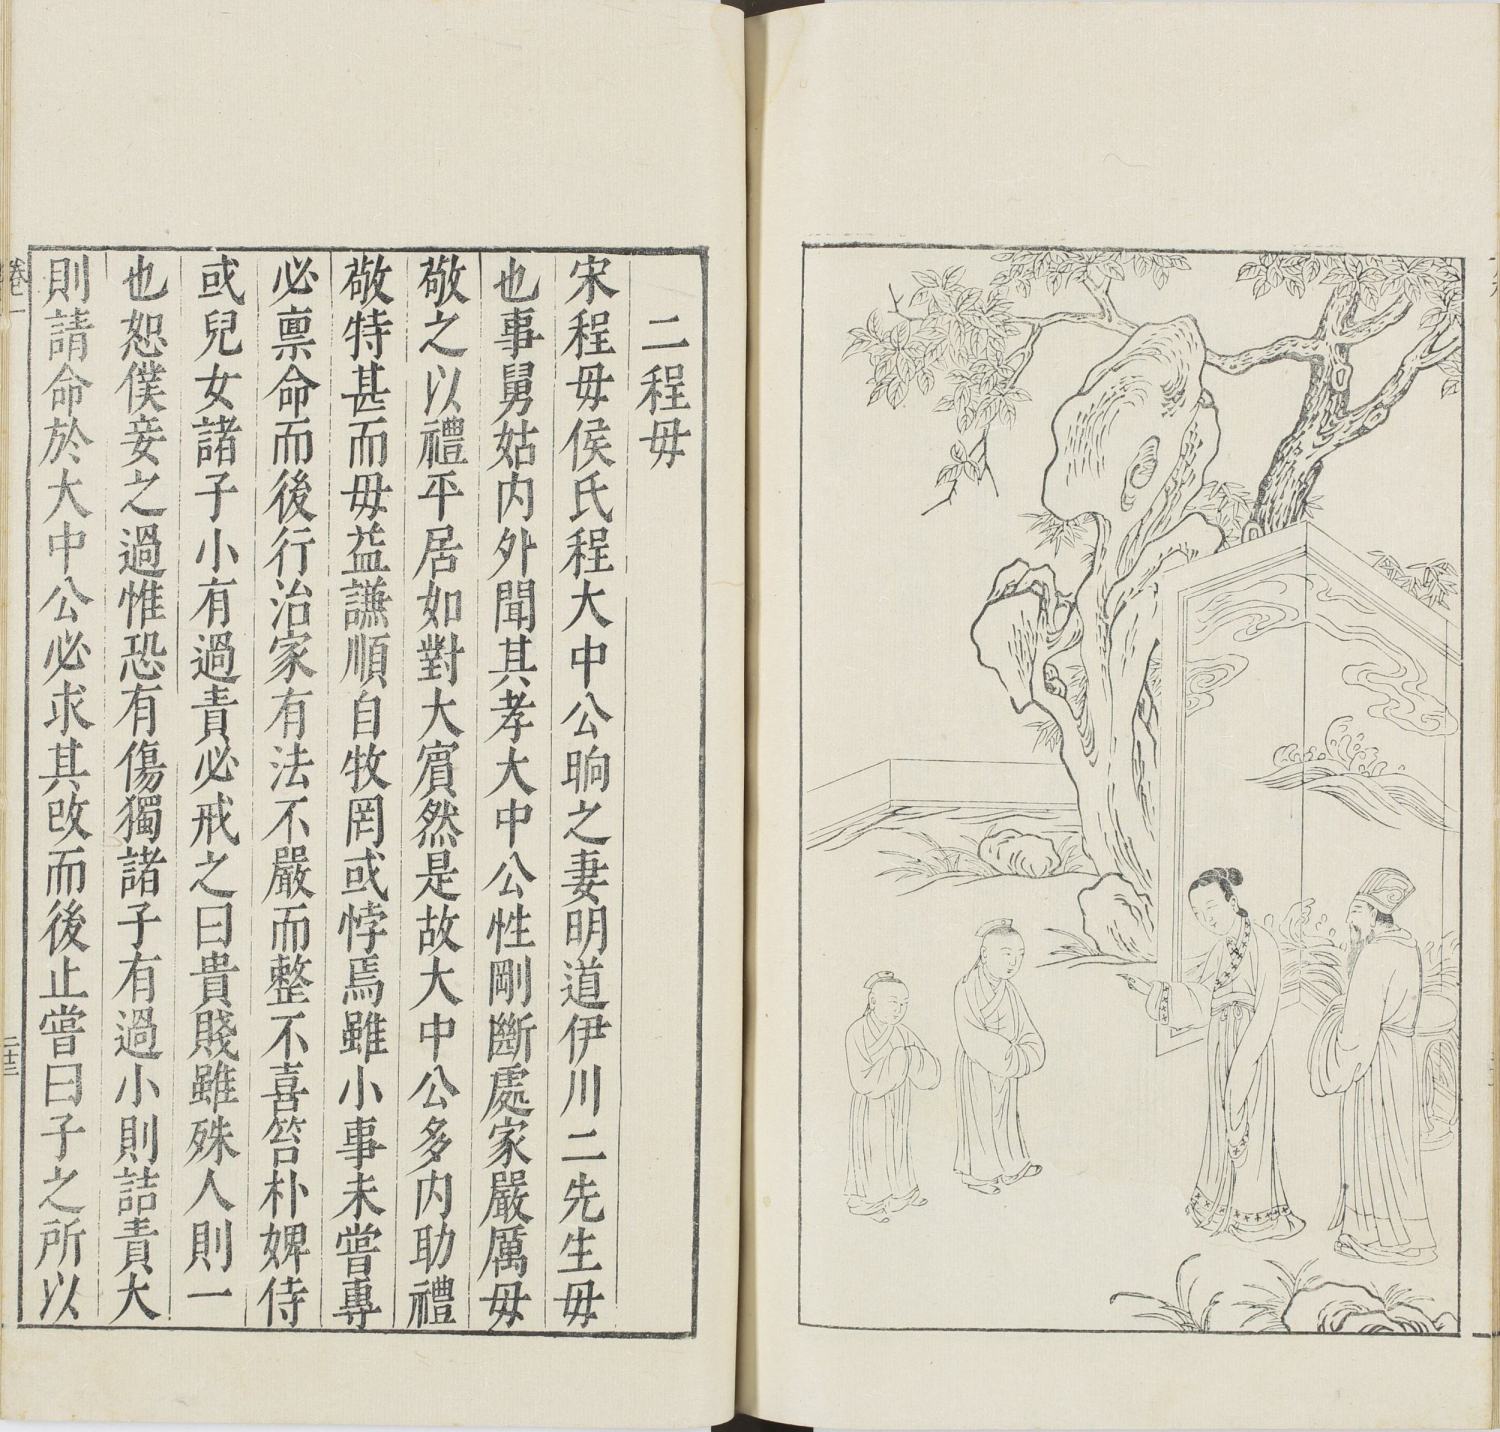 二程毋
宋程毋侯氏程大中公晌之妻明道伊川二先生毋
也事舅姑内外聞其孝大中公性剛斷處家嚴厲毋
敬之以禮平居如對大賓然是故大中公多内助禮
敬特甚而毋益謙順自牧罔或悖焉雖小事未嘗專
必禀命而後行治家有法不嚴而整不喜笞朴婢侍
或兒女諸子小有過責必戒之曰貴賤雖殊人則一
也恕僕妾之過惟恐有傷獨諸子有過小則詰責大
則請命於大中公必求其改而後止嘗曰子之所以
卷一
二十三